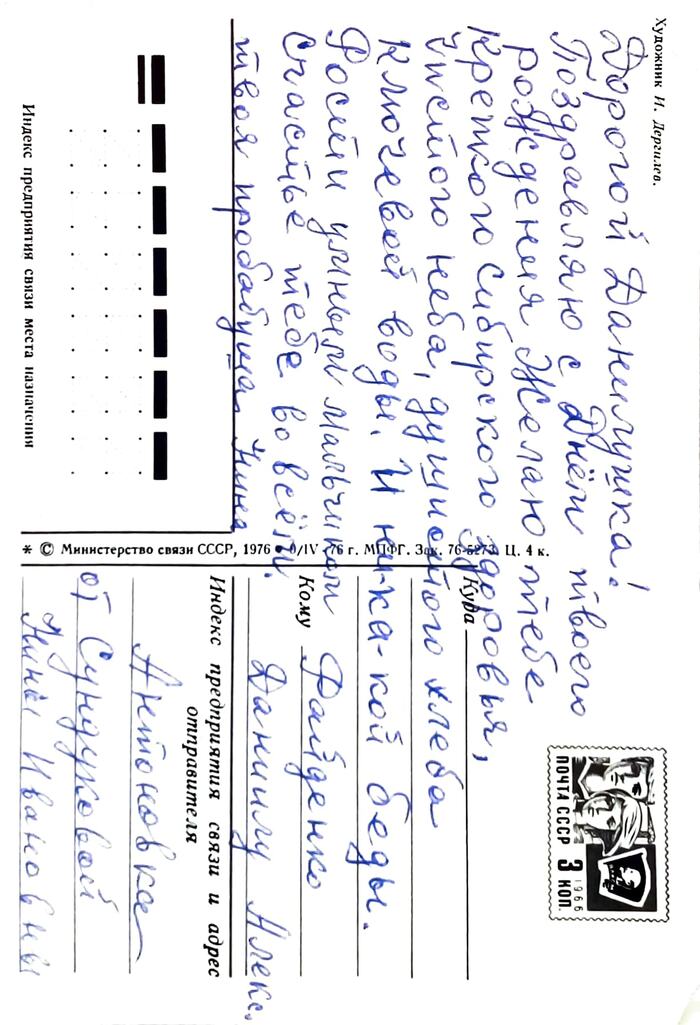 Художник И. Дергилев.
Дорогой Данилушка!
Поздравляю с Днём твоего
рождения Желаю тебе
крепкого сибирского здоровья,
чистого неба, душистого хлеба
ключевой воды. И ни-ка-кой беды.
Рости умным мальчиком
Счастье тебе во всём.
твоя прабабушка Нина
ПОЧТА СССР 3 КОП.
1966
Куда
Кому Файденко
Даниилу Алекс.
Индекс предприятия связи и адрес
отправителя
Антоновка
от Сундуковой
Нины Ивановны
Индекс предприятия связи места назначения
* © Министерство связи СССР, 1976 9/IV -76 г. МПФГ. Зак. 76-5273. Ц. 4 к.